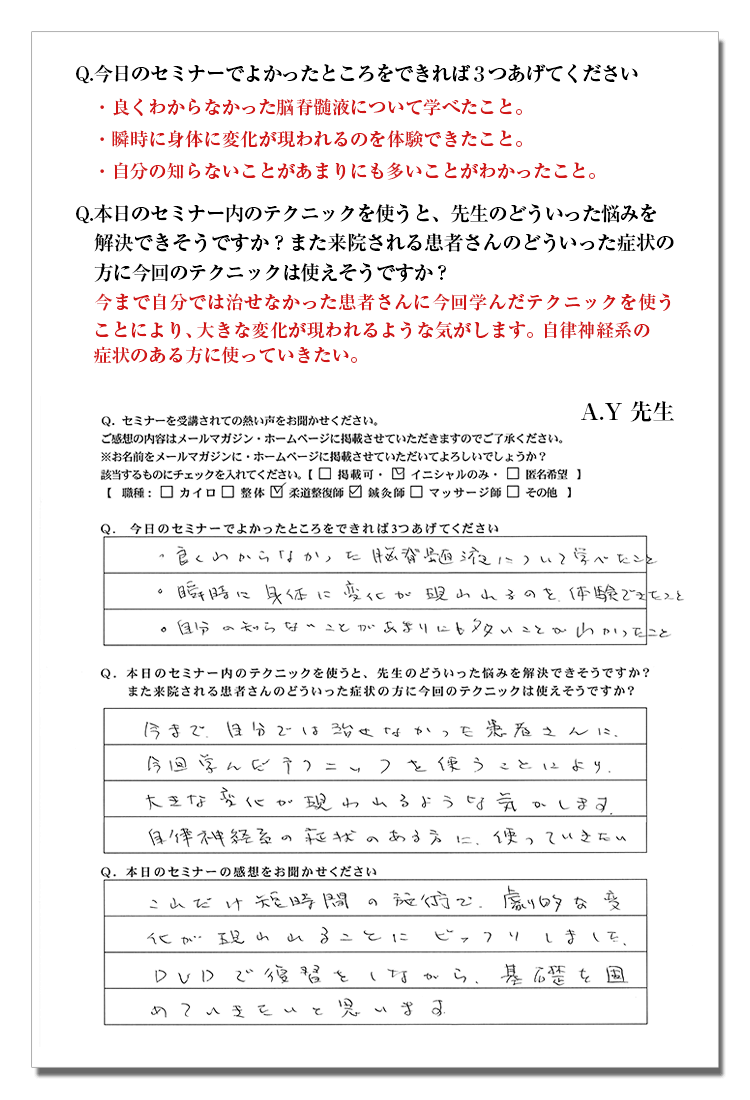 Q.今日のセミナーでよかったところをできれば３つあげてください
・良くわからなかった脳脊髄液について学べたこと。
・瞬時に身体に変化が現われるのを体験できたこと。
・自分の知らないことがあまりにも多いことがわかったこと。
Q.本日のセミナー内のテクニックを使うと、先生のどういった悩みを
解決できそうですか？また来院される患者さんのどういった症状の
方に今回のテクニックは使えそうですか？
今まで自分では治せなかった患者さんに今回学んだテクニックを使う
ことにより、大きな変化が現われるような気がします。自律神経系の
症状のある方に使っていきたい。
A.Y 先生
Q．セミナーを受講されての熱い声をお聞かせください。
ご感想の内容はメールマガジン・ホームページに掲載させていただきますのでご了承ください。
※お名前をメールマガジンに・ホームページに掲載させていただいてよろしいでしょうか？
該当するものにチェックを入れてください。【 □ 掲載可・ ☑ イニシャルのみ・ □ 匿名希望 】
【 職種： □ カイロ □ 整体 ☑ 柔道整復師 ☑ 鍼灸師 □ マッサージ師 □ その他 】
Q． 今日のセミナーでよかったところをできれば3つあげてください
・良くわからなかった脳脊髄液について学べたこと
・瞬時に身体に変化が現われるのを、体験できたこと
・自分の知らないことがあまりにも多いことがわかったこと
Q．本日のセミナー内のテクニックを使うと、先生のどういった悩みを解決できそうですか？
また来院される患者さんのどういった症状の方に今回のテクニックは使えそうですか？
今まで、自分では治せなかった患者さんに、
今回学んだテクニックを使うことにより、
大きな変化が現われるような気がします。
自律神経系の症状のある方に、使っていきたい
Q．本日のセミナーの感想をお聞かせください
これだけ短時間の施術で、劇的な変
化が現われることにビックリしました、
DVDで復習をしながら、基礎を固
めていきたいと思います